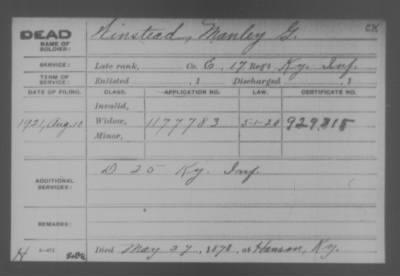 DEAD Winstead, Manley G. CK
NAME OF SOLDIER:
SERVICE: Late rank, Co. E, 17 Reg't Ky. Inf.
TERM OF SERVICE: Enlisted , 1 Discharged , 1
DATE OF FILING. CLASS. APPLICATION NO. LAW. CERTIFICATE NO.
Invalid,
1921, Aug. 10 Widow, 1177783 5-1-20 929,815
Minor,
ADDITIONAL SERVICES: D 25 Ky. Inf.
REMARKS:
Died May 27, 1878, at Hanson, Ky.